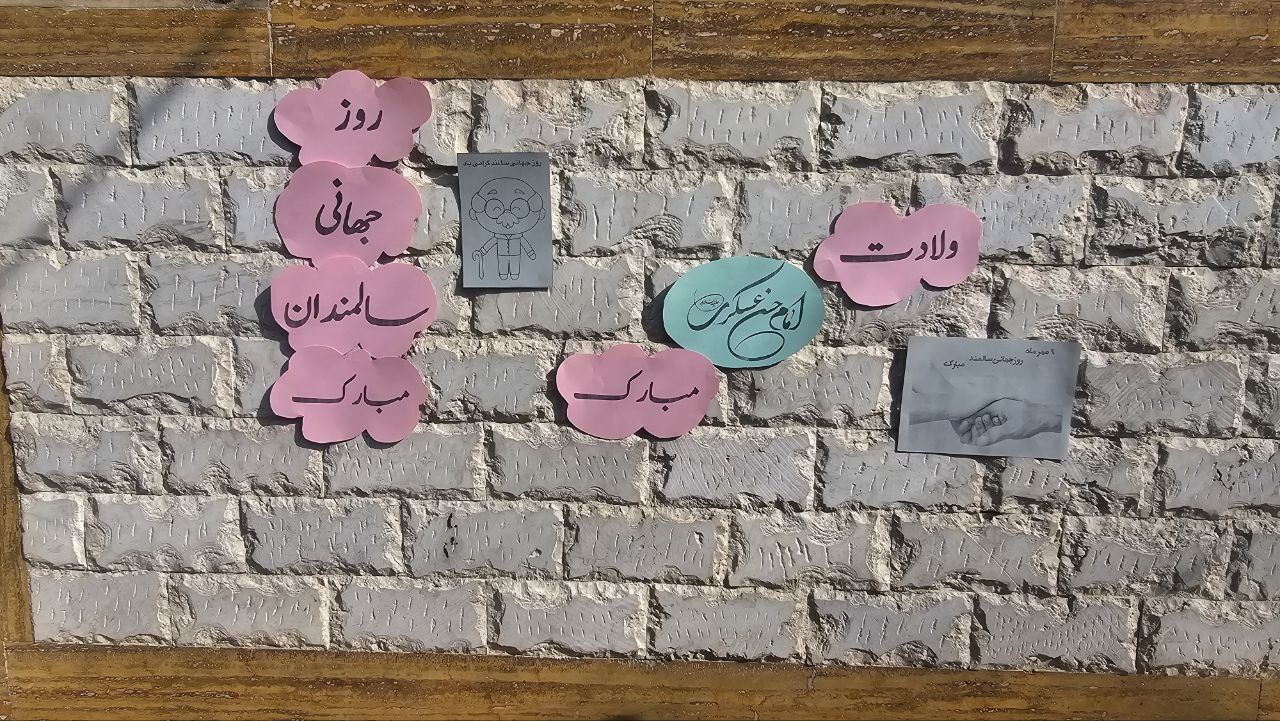 روز
جهانی
سالمندان
مبارک
روز جهانی سالمند گرامی باد
ولادت
امام حسن عسکری
مبارک
۹ مهر ماه
روز جهانی سالمند
مبارک